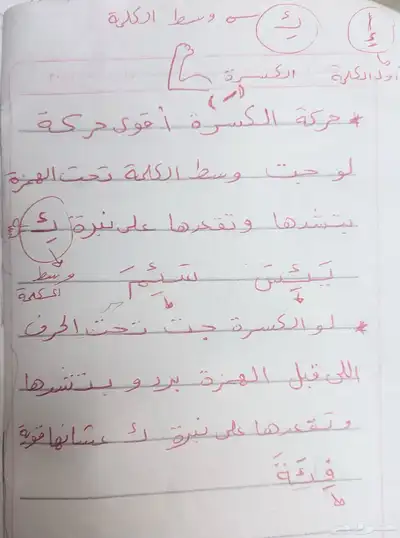 أ إ ئ وسط الكلمة
أول الكلمة الكسرة
* حركة الكسرة أقوى حركة
لو جت وسط الكلمة تحت الهمزة
بتشدها وتقعدها على نبرة ئ
يَئِسَ سَئِمَ وسط الكلمة
* لو الكسرة جت تحت الحرف
اللي قبل الهمزة بردو بتشدها
وتقعدها على نبرة ئ عشانها قوية
فِئَة